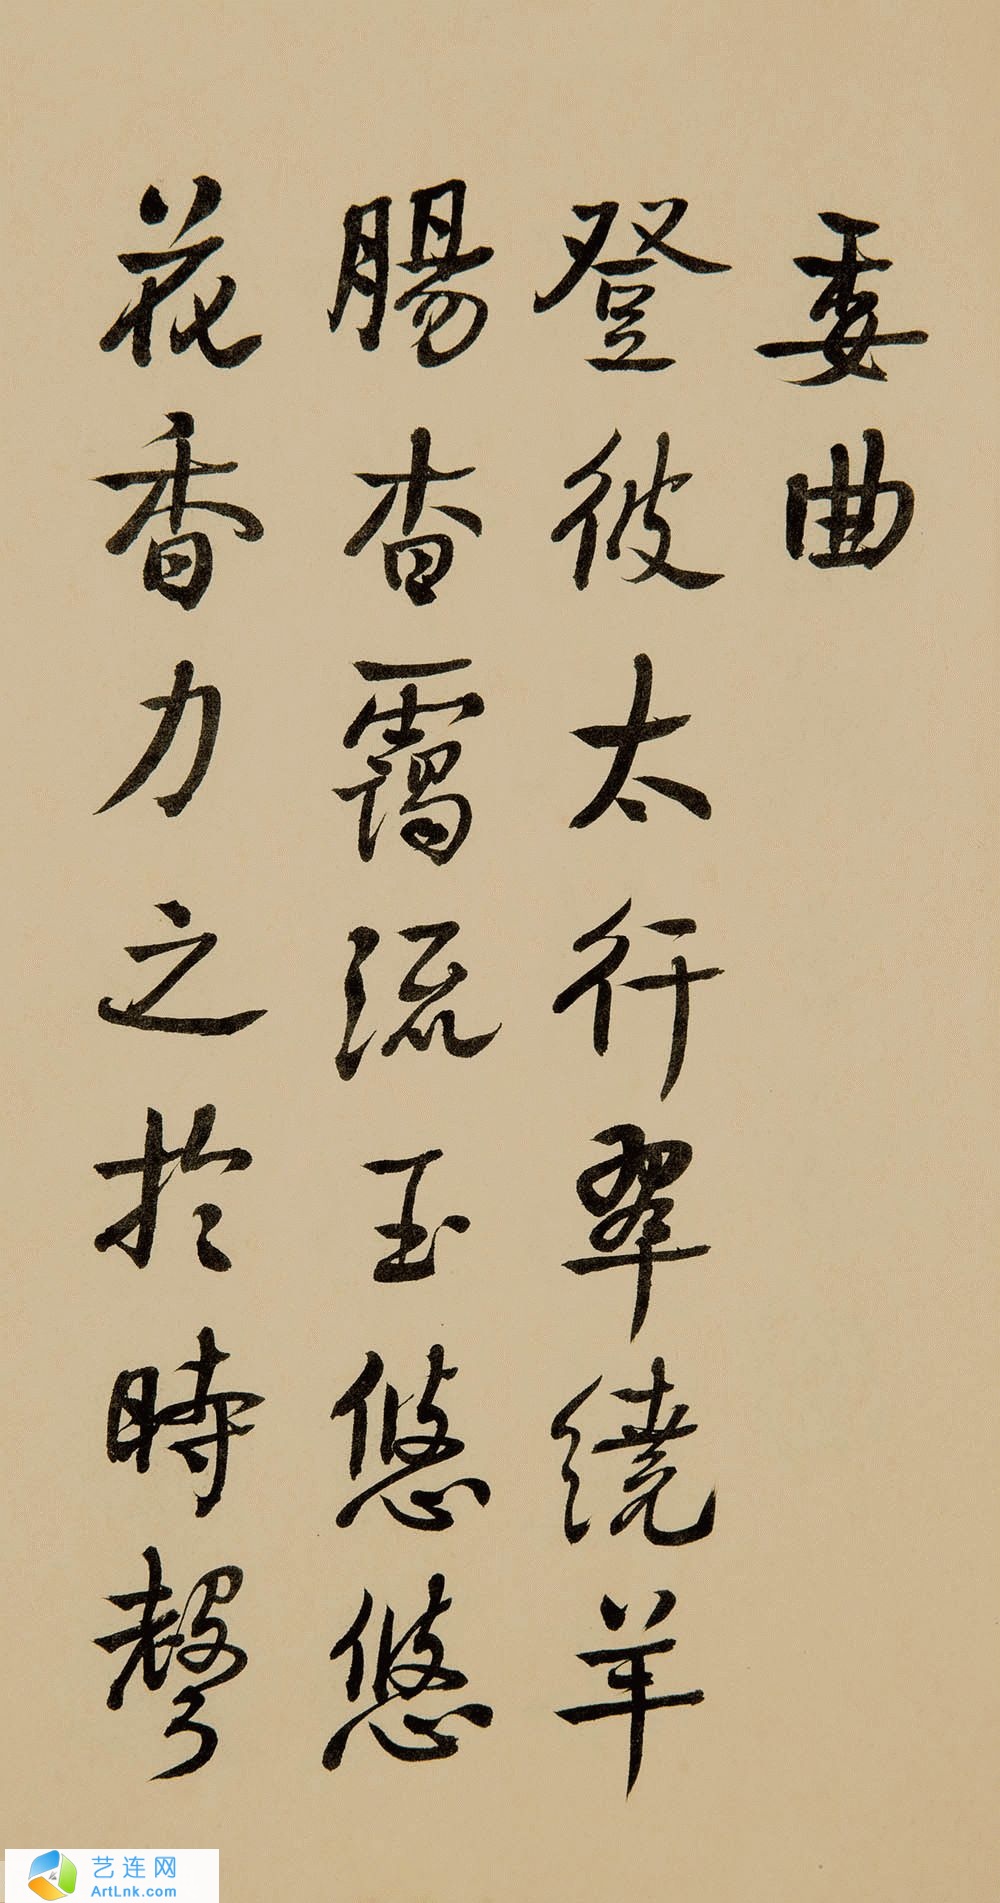 委曲
登彼太行翠繞羊
腸杳靄流玉悠悠
花香力之於時聲
艺连网
ArtLnk.com